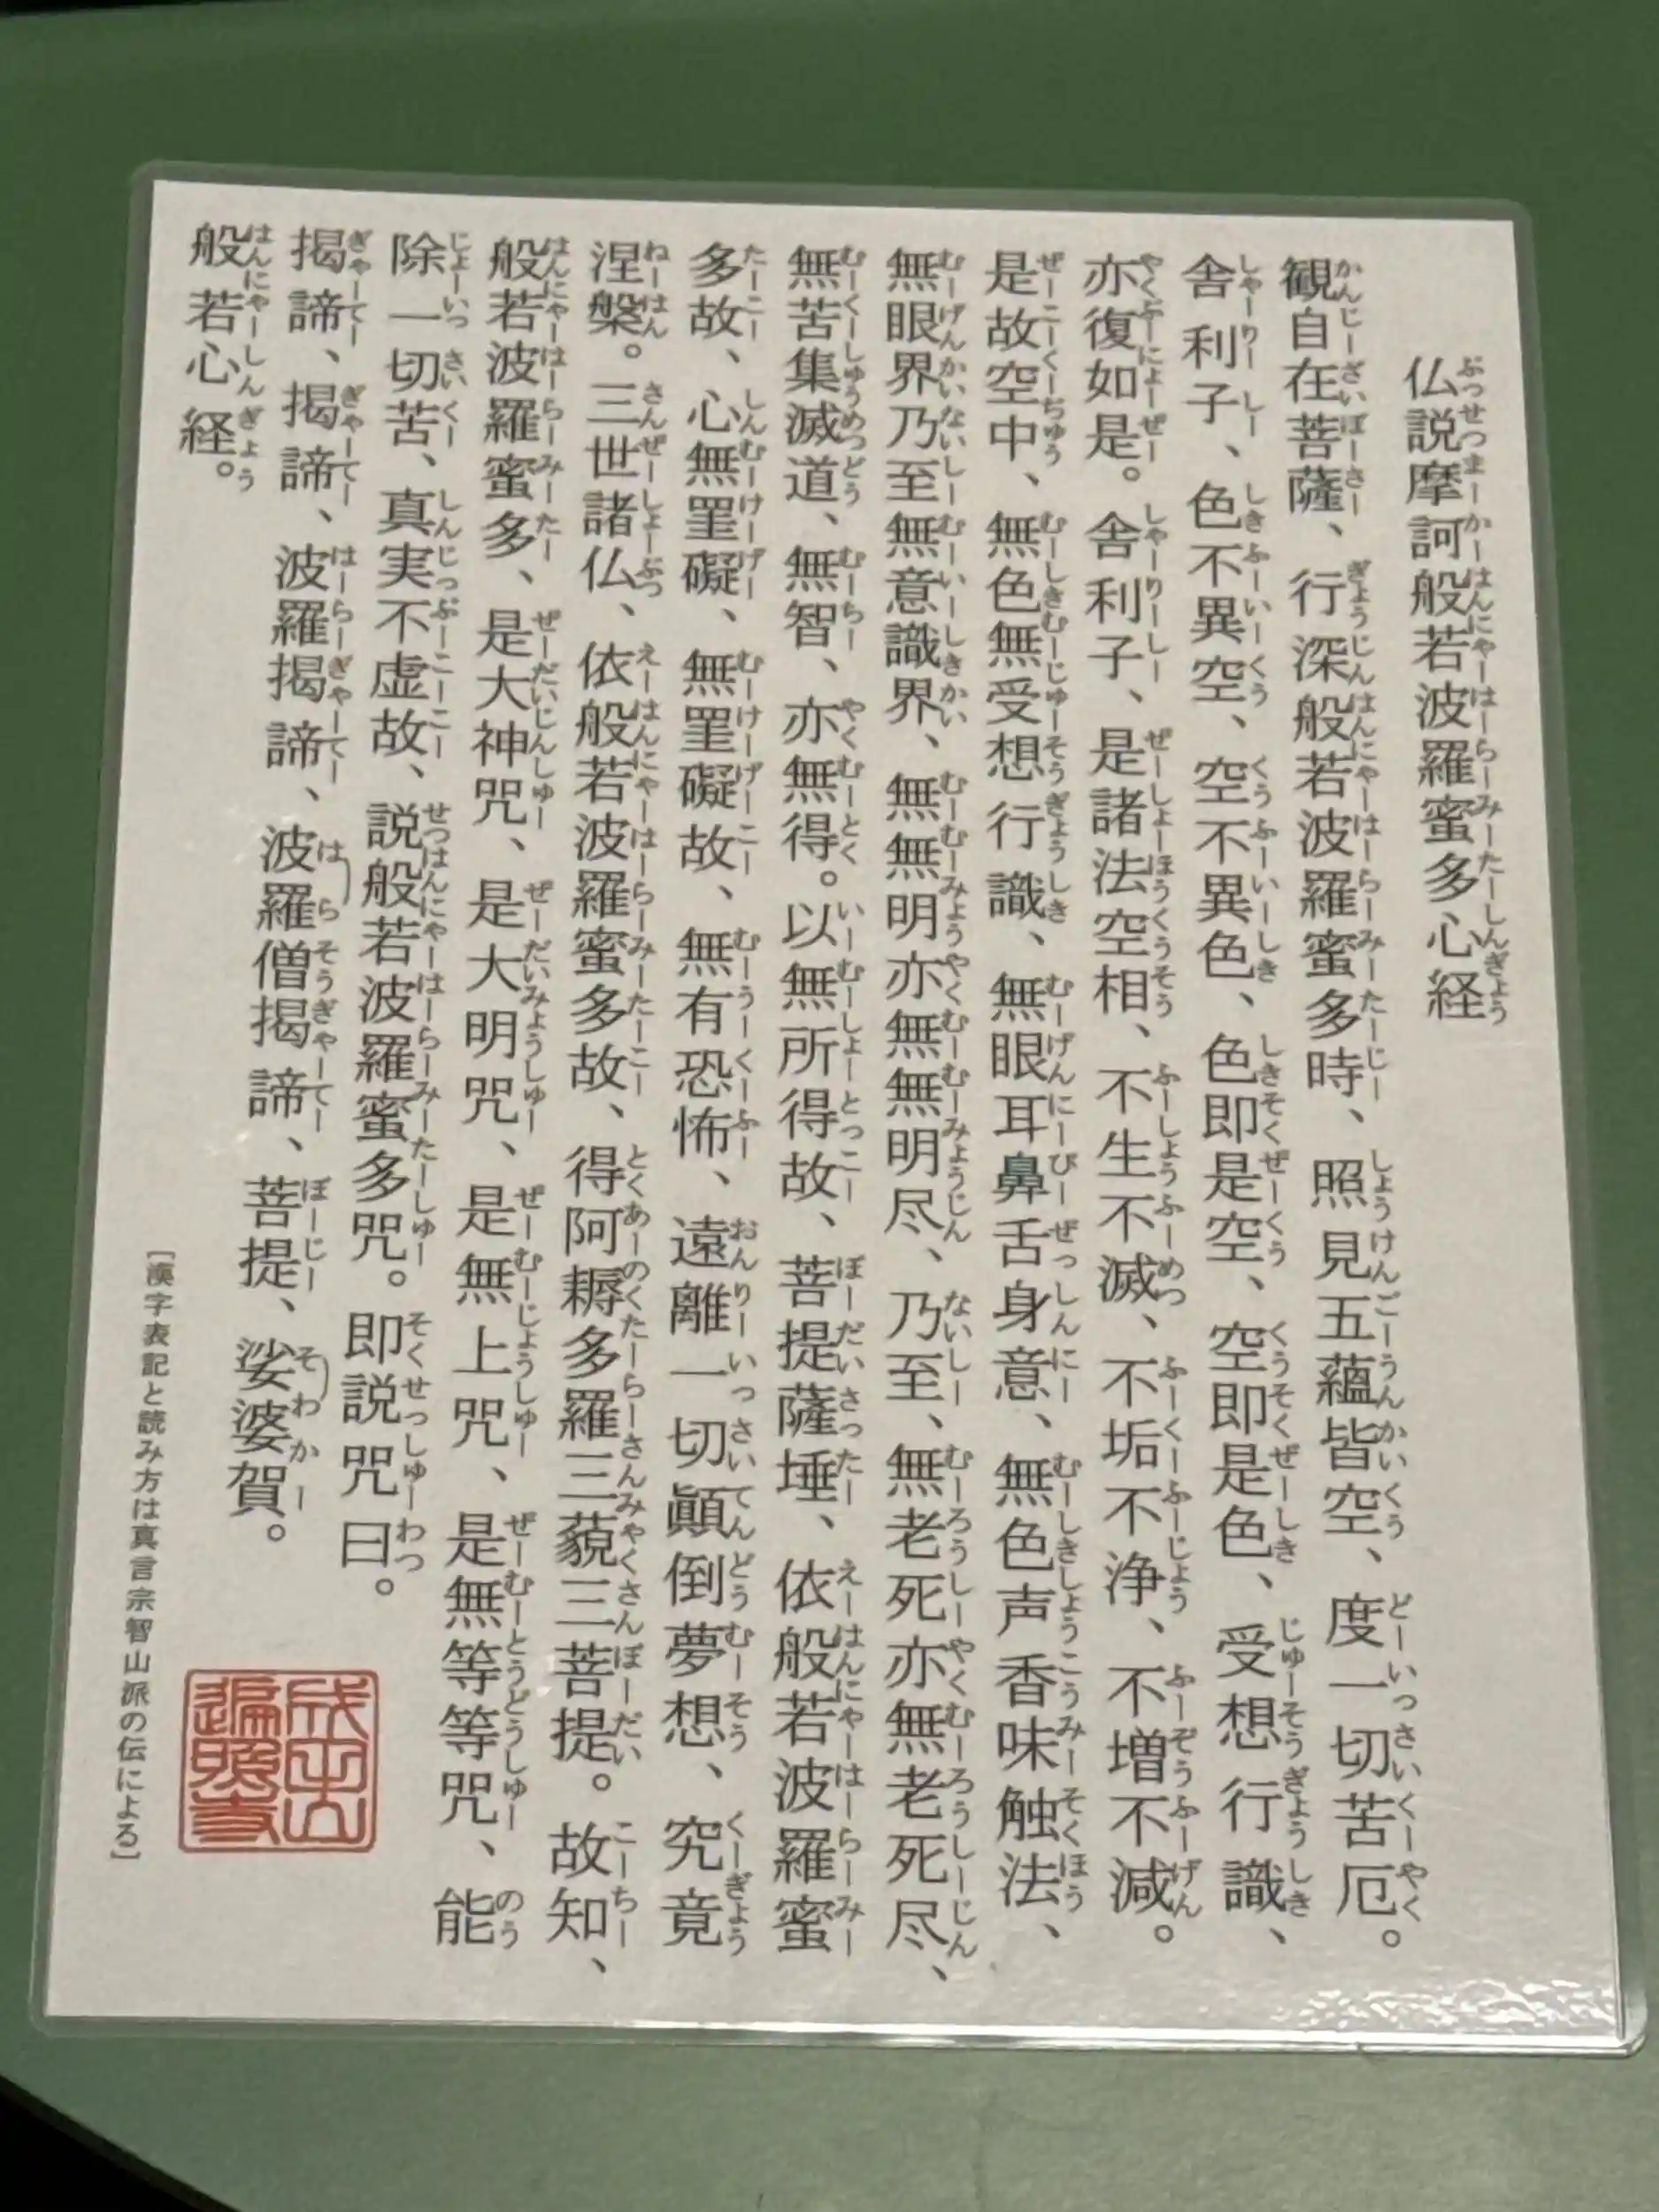 仏説摩訶般若波羅蜜多心経
観自在菩薩、行深般若波羅蜜多時、照見五蘊皆空、度一切苦厄。
舎利子、色不異空、空不異色、色即是空、空即是色、受想行識、
亦復如是。舎利子、是諸法空相、不生不滅、不垢不浄、不増不減。
是故空中、無色無受想行識、無眼耳鼻舌身意、無色声香味触法、
無眼界乃至無意識界、無無明亦無無明尽、乃至、無老死亦無老死尽、
無苦集滅道、無智、亦無得。以無所得故、菩提薩埵、依般若波羅蜜
多故、心無罣礙、無罣礙故、無有恐怖、遠離一切顚倒夢想、究竟
涅槃。三世諸仏、依般若波羅蜜多故、得阿耨多羅三藐三菩提。故知、
般若波羅蜜多、是大神咒、是大明咒、是無上咒、是無等等咒、能
除一切苦、真実不虚故、説般若波羅蜜多咒。即説咒曰。
揭諦、揭諦、波羅揭諦、波羅僧揭諦、菩提、娑婆賀。
般若心経。
[漢字表記と読み方は真言宗智山派の伝による]
成田山
遍照寺